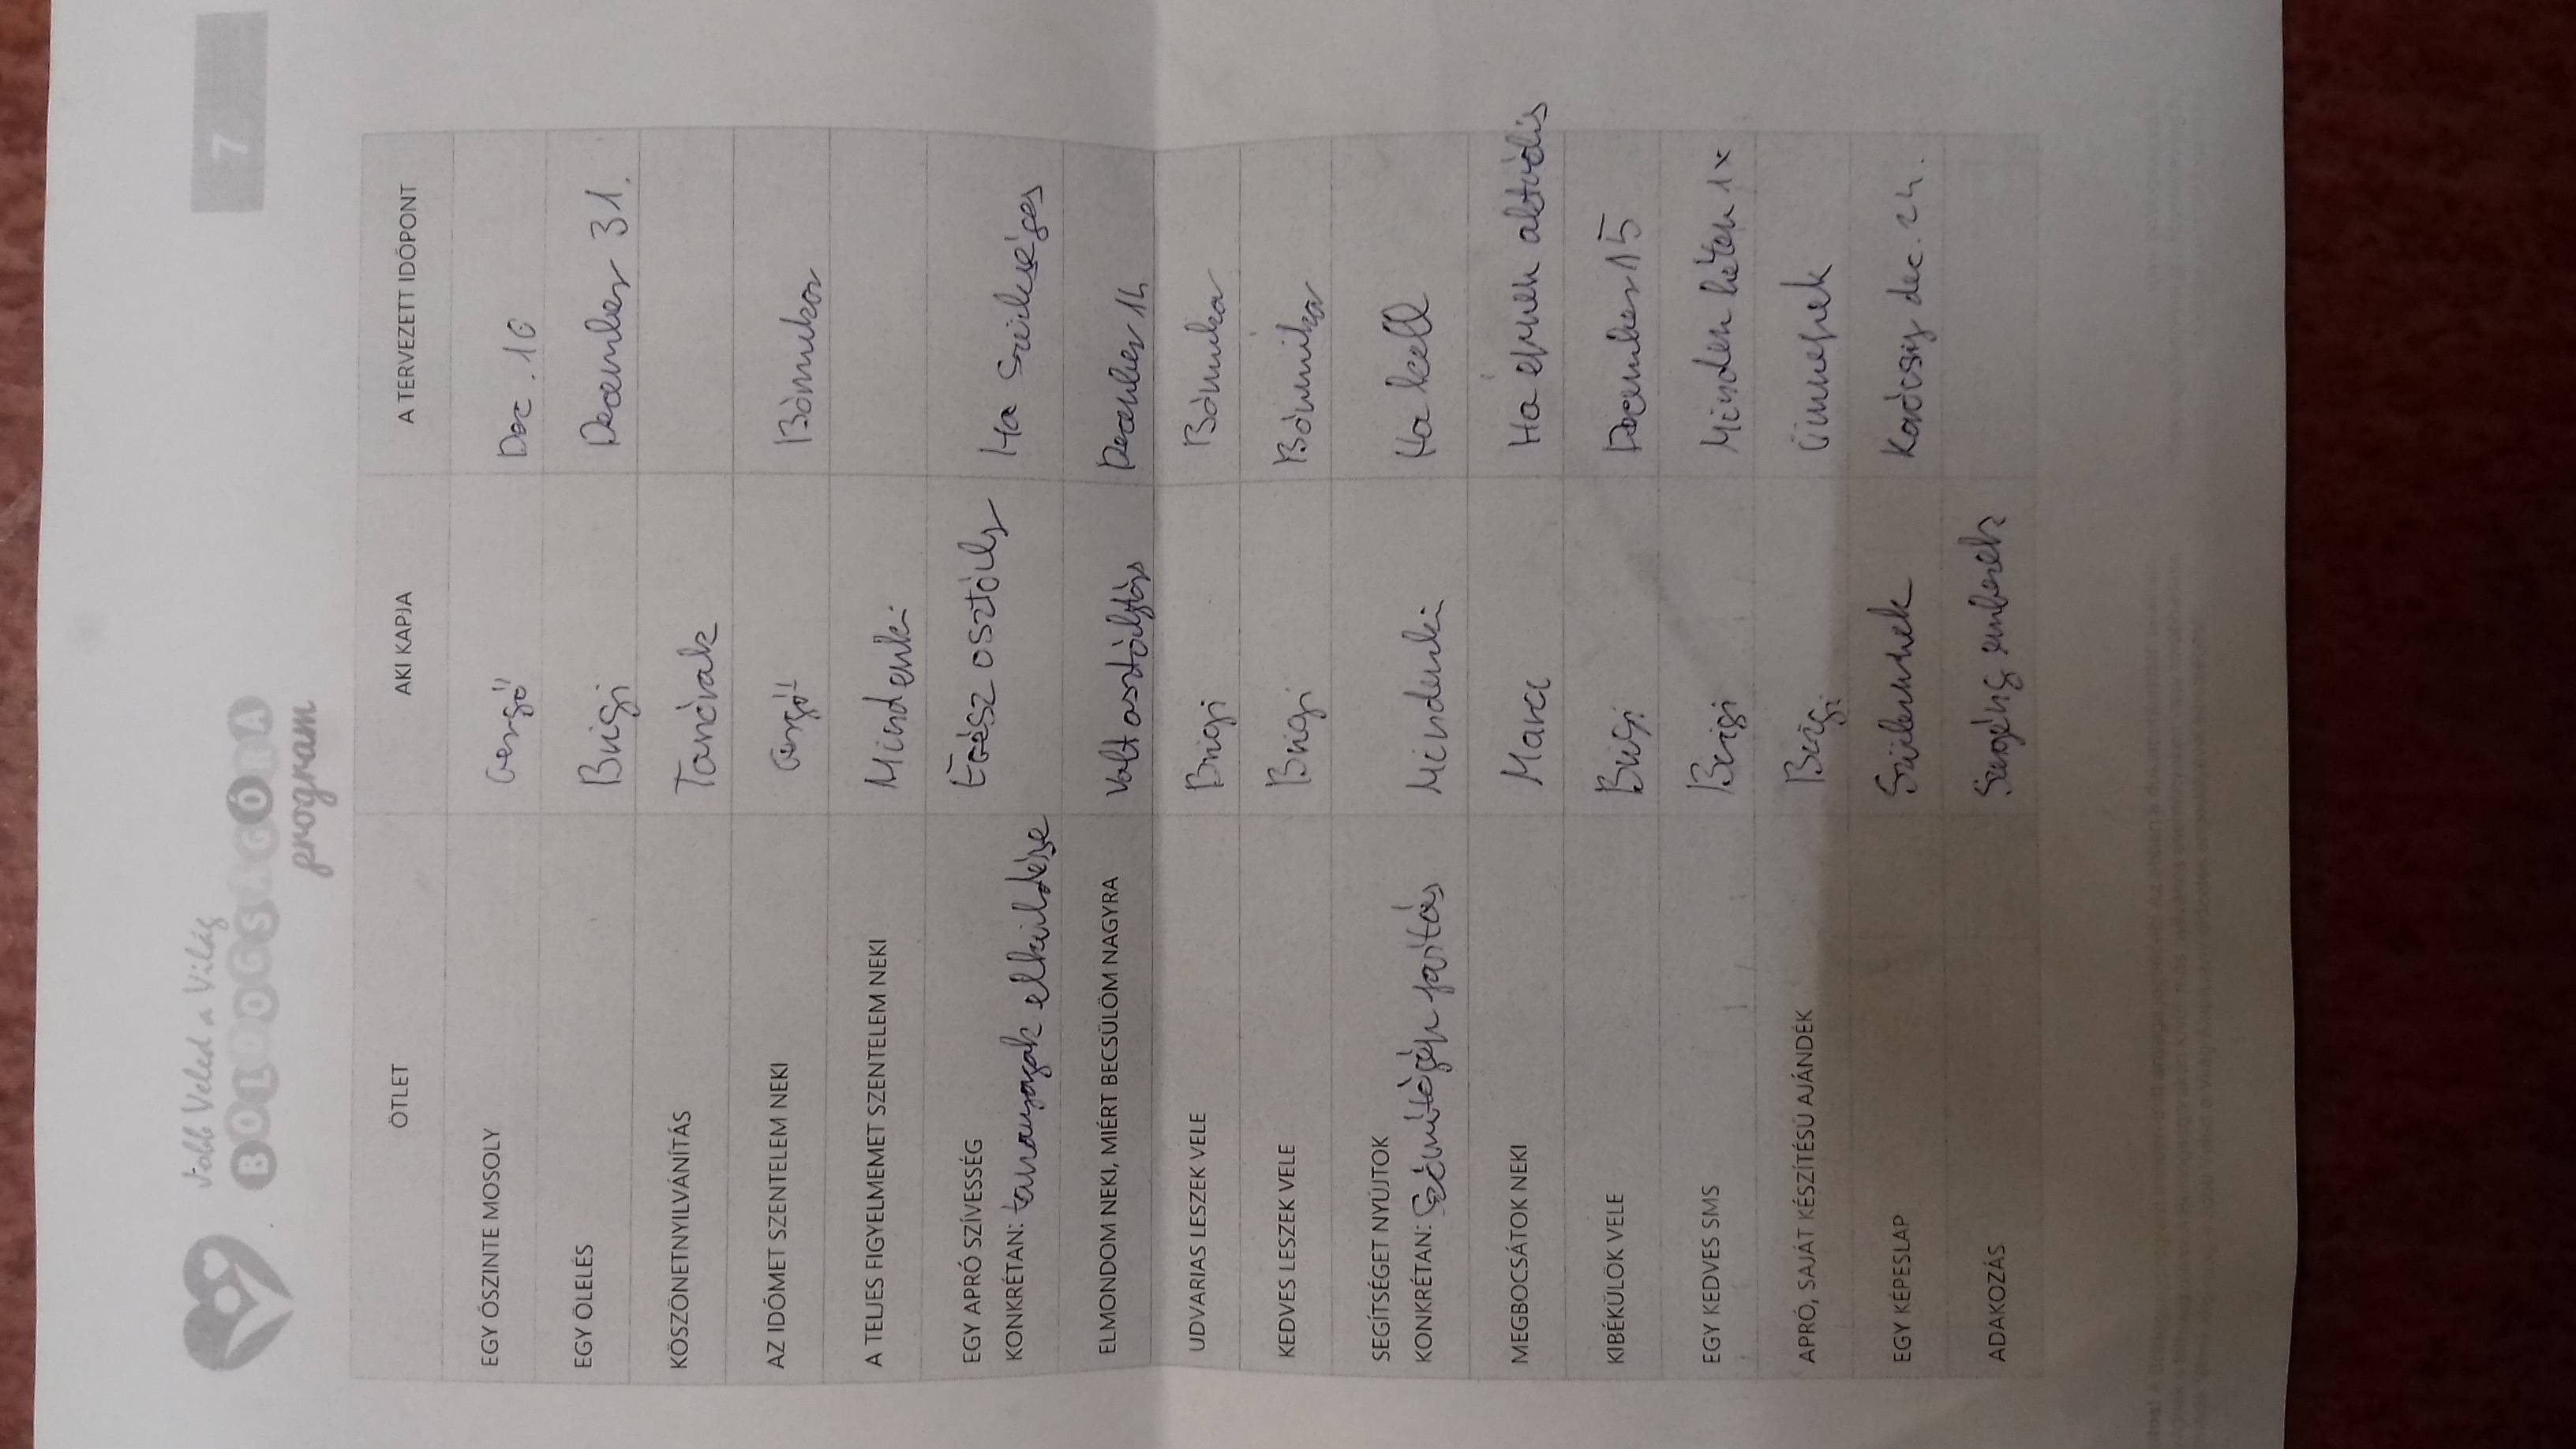 Jobb Veled a Világ
BOLDOGSÁGÓRA
program
7
ÖTLET AKI KAPJA A TERVEZETT IDŐPONT
EGY ŐSZINTE MOSOLY Gergő Dec. 16
EGY ÖLELÉS Brigi December 31.
KÖSZÖNETNYILVÁNÍTÁS Tanárak
AZ IDŐMET SZENTELEM NEKI Gergő Bármikor
A TELJES FIGYELMEMET SZENTELEM NEKI Mindenki
EGY APRÓ SZÍVESSÉG Egész osztály Ha szükséges
KONKRÉTAN: tananyagok elküldése
ELMONDOM NEKI, MIÉRT BECSÜLÖM NAGYRA Volt osztályfőnöke December 14
UDVARIAS LESZEK VELE Brigi Bármikor
KEDVES LESZEK VELE Brigi Bármikor
SEGÍTSÉGET NYÚJTOK
KONKRÉTAN: Számítógép javítás Mindenki Ha kell
MEGBOCSÁTOK NEKI Marci Ha éppen aktuális
KIBÉKÜLÖK VELE Brigi December 15
EGY KEDVES SMS Brigi Minden héten 1x
APRÓ, SAJÁT KÉSZÍTÉSŰ AJÁNDÉK Brigi Ünnepek
EGY KÉPESLAP Szüleimnek Karácsony dec. 24.
ADAKOZÁS Szegény emberek